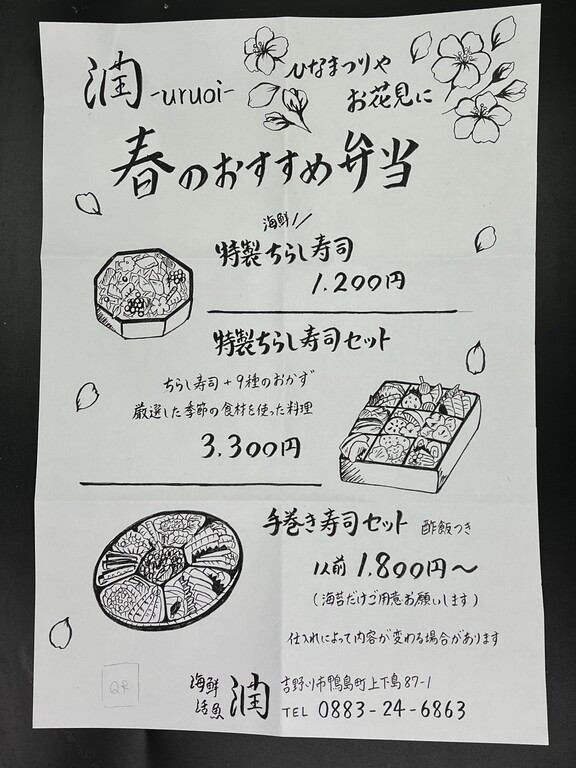 潤 -uruoi-
ひなまつりや
お花見に
春のおすすめ弁当
海鮮
特製ちらし寿司
1.200円
特製ちらし寿司セット
ちらし寿司+9種のおかず
厳選した季節の食材を使った料理
3.300円
手巻き寿司セット 酢飯つき
1人前 1.800円〜
(海苔だけご用意お願いします)
仕入れによって内容が変わる場合があります
QR
海鮮
活魚
潤
吉野川市鴨島町上下島87-1
TEL 0883-24-6863